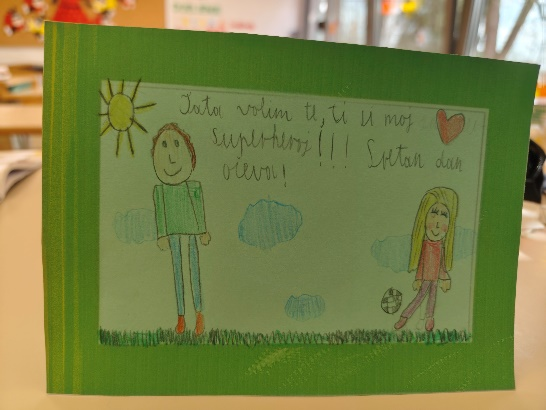 Tata volim te, ti si moj
superheroj!!! Sretan dan
očeva!